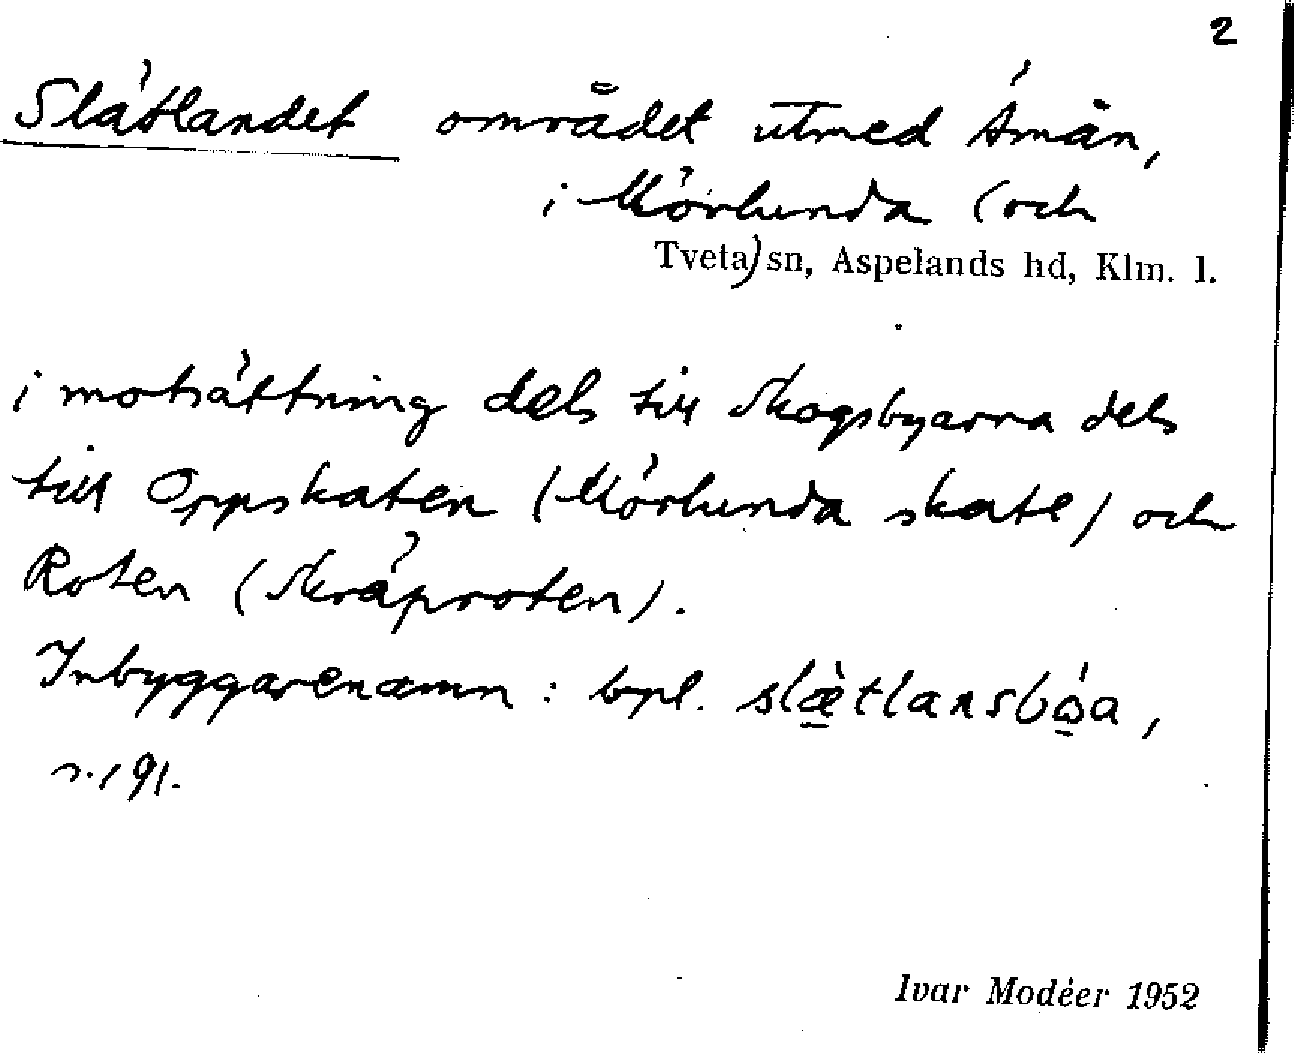 2
Slätlandet området utmed Emån,
i Mörlunda (och
Tveta) sn, Aspelands hd, Klm. l.
i motsättning dels till skogsbyarna dels
till Oppskaten (Mörlunda skate) och
Roten (Skräproten).
Inbyggarenamn: bpl. slæ̀tlansbóa,
s. 191.
Ivar Modéer 1952